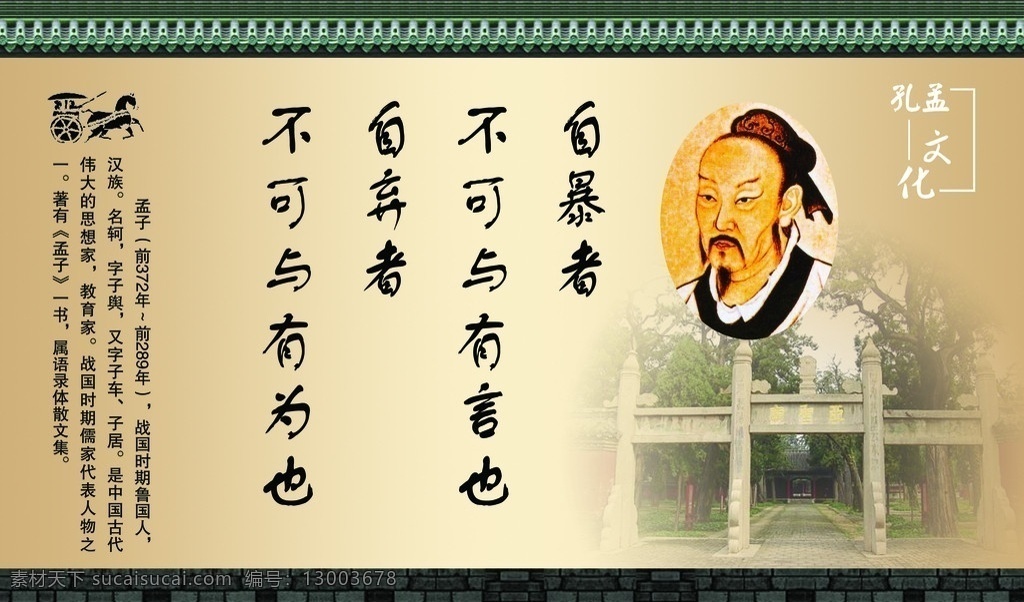 孔孟
文
化
自暴者
不可与有言也
自弃者
不可与有为也
孟子(前372年~前289年),战国时期鲁国人,
汉族。名轲,字子舆,又字子车、子居。是中国古代
伟大的思想家,教育家。战国时期儒家代表人物之
一。著有《孟子》一书,属语录体散文集。
素材天下 sucaisucai.com 编号:13003678